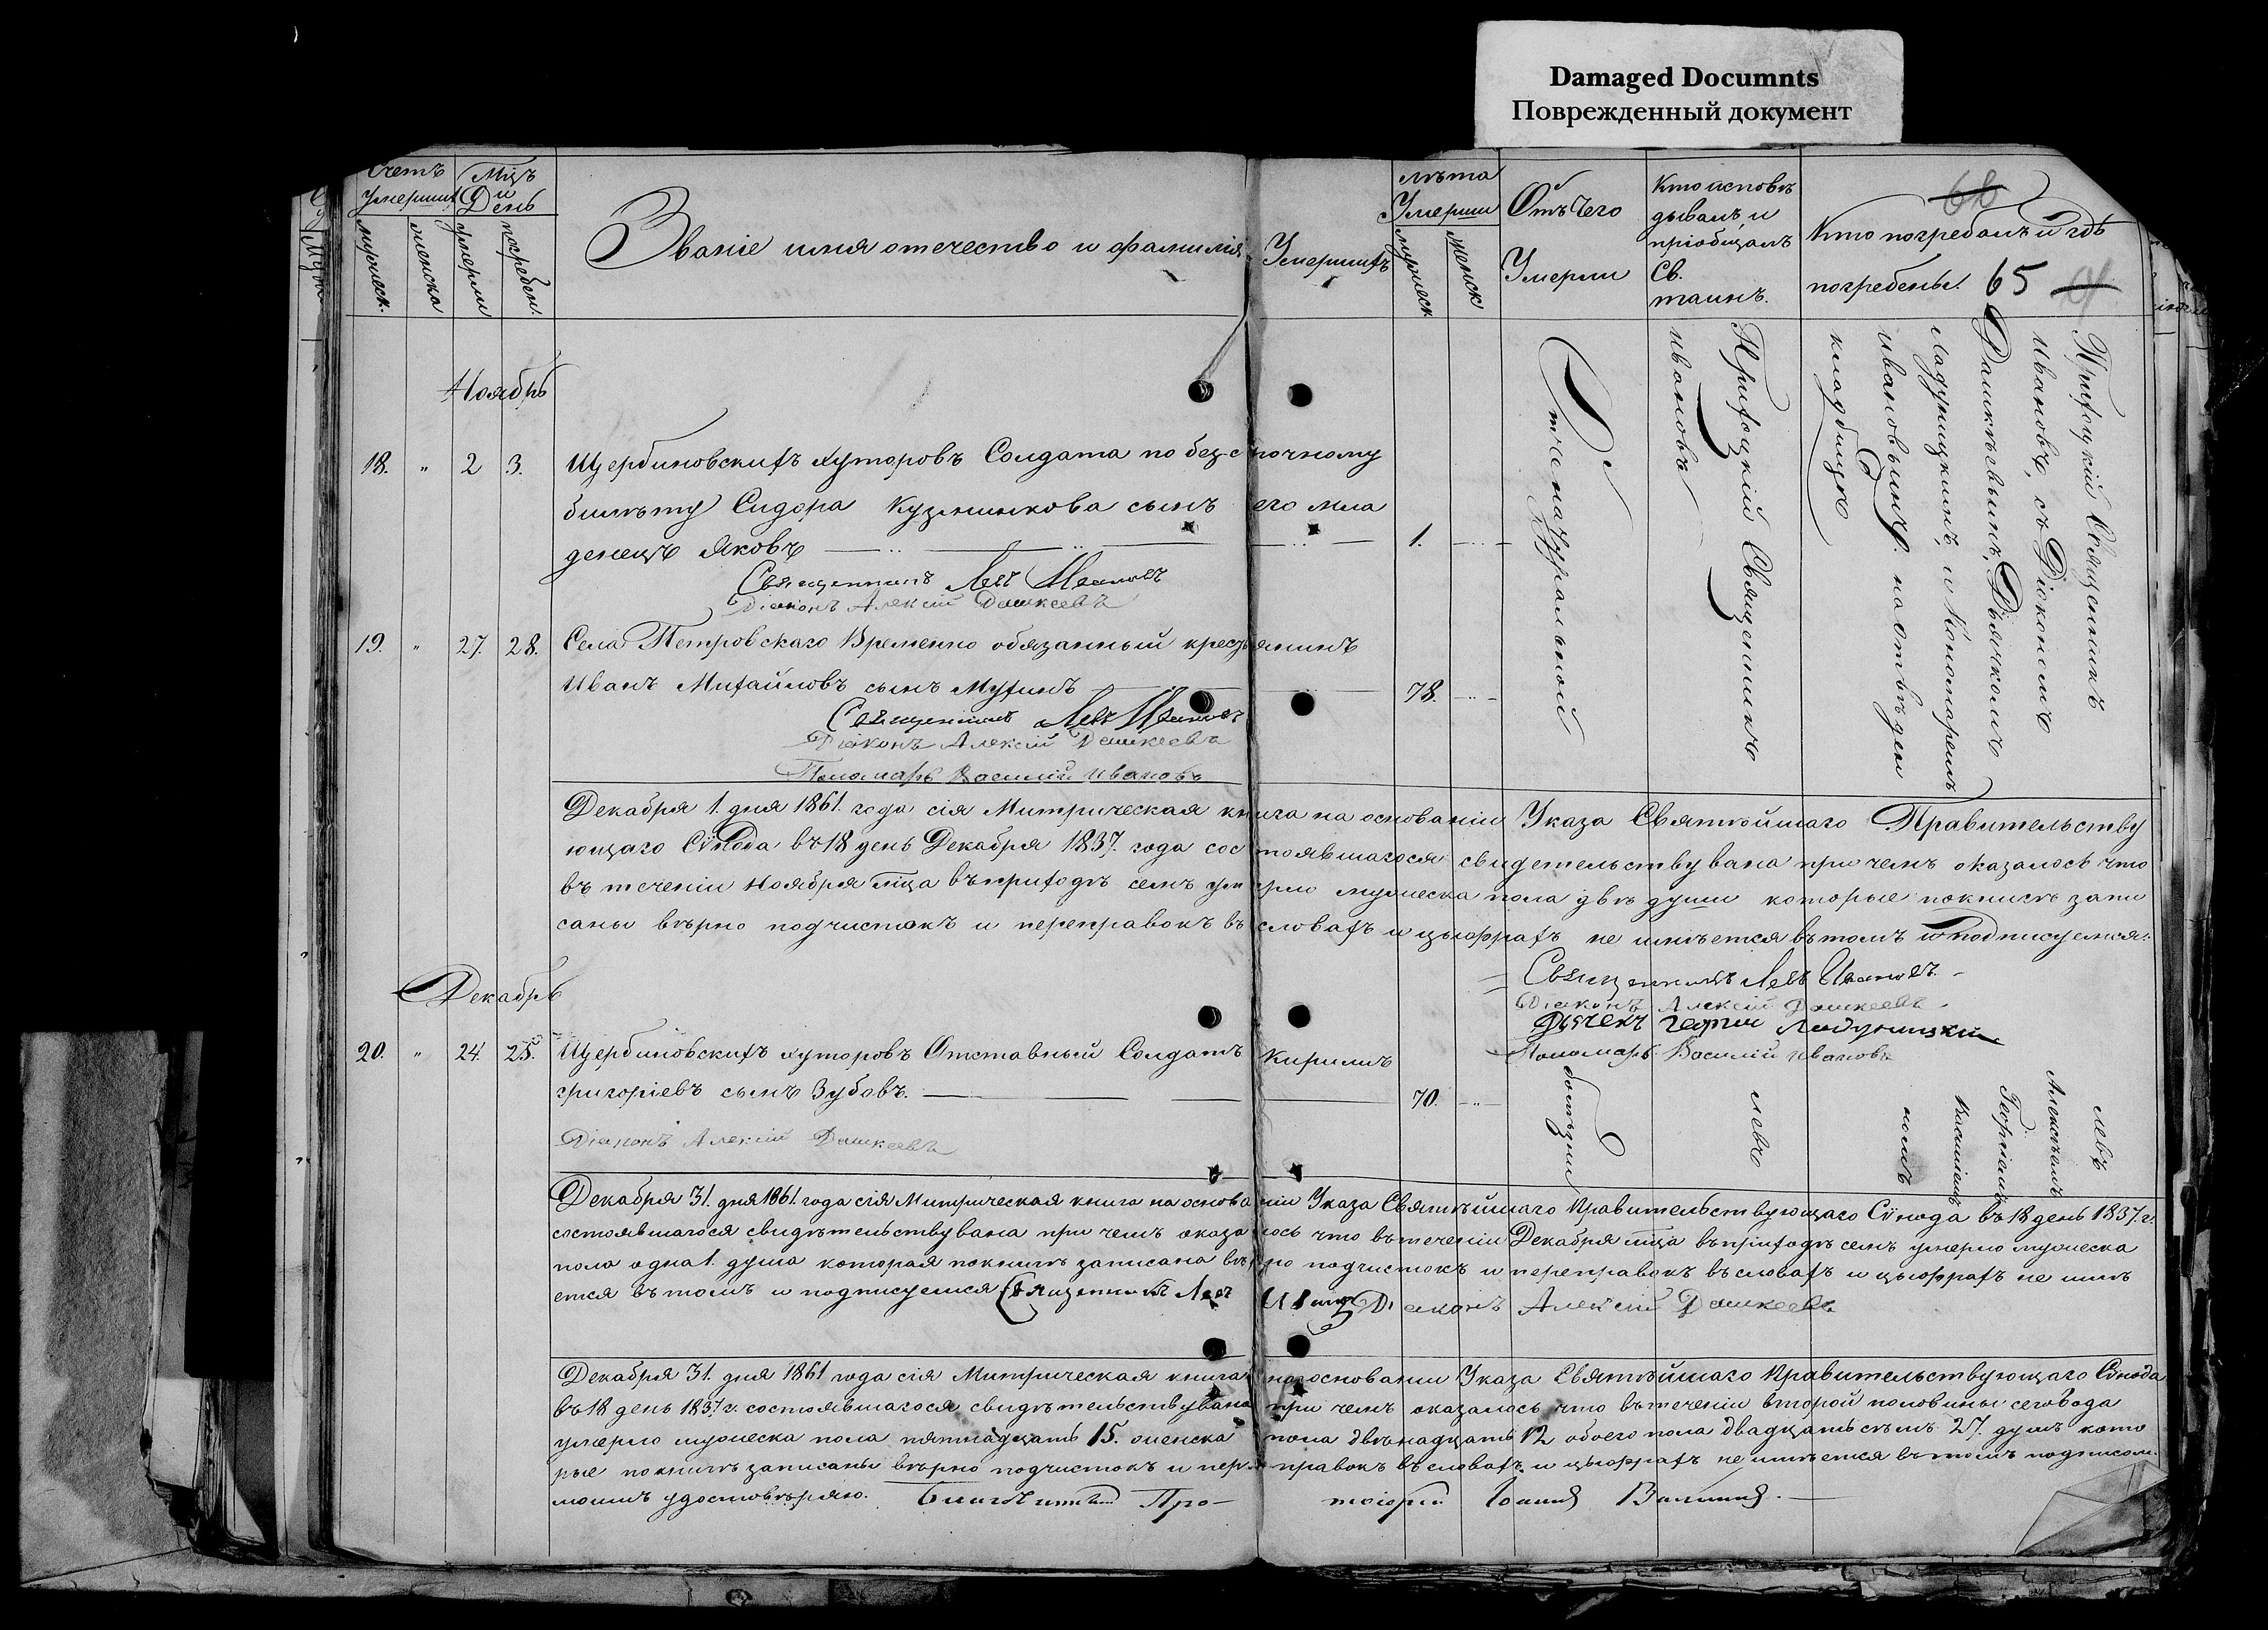 Damaged Documnts
Поврежденный документ
Счетъ Умерших
Мцъ и День
мужеск.
женска
умерли
погребен.
Званіе имя отечество и фамилія Умершихъ
лѣта Умерши
мужеск.
женск
Отъ Чего Умерли
Кто исповѣ
дывалъ и
пріобщалъ
Св.
таинъ.
Кто погребалъ и гдѣ
погребены.
68
65
Ноябрь
18. " 2 3. Щербиновскихъ Хуторовъ Солдата по безсрочному
билѣту Сидора Кузминкова сынъ его мла
денецъ Яковъ 1.
Священникъ Левъ Ивановъ
Діаконъ Алексій Дашкеевъ
19. " 27. 28. Села Петровскаго Временно обязанный крестьянинъ
Иванъ Михайловъ сынъ Мухинъ 78.
Священникъ Левъ Ивановъ
Діаконъ Алексій Дашкеевъ
Пономарь Василій Ивановъ
натуральной
Приходскій Священникъ
Ивановъ
Приходскій Священникъ
Ивановъ, съ Діакономъ
Дашкѣевымъ, Дьячкомъ
Ладухицкимъ, и Пономаремъ
Ивановымъ. на отвѣден
кладбищѣ
Декабря 1. дня 1861. года сія Митрическая книга на основаніи Указа Святѣйшаго Правительству
ющаго Сѵнода въ 18 день Декабря 1837. года состоявшагося свидетельствувана при чемъ оказалось что
въ теченіи Ноября мца въ приходѣ семъ умерло мужеска пола двѣ души которые по книгѣ запи
саны вѣрно подчистокъ и переправокъ въ словахъ и цыфрахъ не имѣется въ томъ и подписуемся:
Священникъ Левъ Ивановъ.
Діаконъ Алексій Дашкеевъ.
Дячекъ
Пономарь Василій Ивановъ
Декабрь
20. " 24. 25. Щербиновскихъ хуторовъ Отставный Солдатъ Кирилъ
григоріевъ сынъ Зубовъ. 70.
Діаконъ Алексій Дашкеевъ
болѣзни
левъ
левъ
Алексѣемъ
Георгіемъ
Василіемъ
номъ
Декабря 31. дня 1861. года сія Митрическая книга на основаніи Указа Святѣйшаго Правительствующаго Сѵнода въ 18 день 1837. г.
состоявшагося свидѣтельствувана при чемъ оказалось что въ теченіи Декабря мца въ приходѣ семъ умерло мужеска
пола одна 1. душа которая по книгѣ записана вѣрно подчистокъ и переправокъ въ словахъ и цыфрахъ не имѣ
ется въ томъ и подписуемся Священникъ Левъ Ивановъ Діаконъ Алексій Дашкеевъ
Декабря 31. дня 1861 года сія Митрическая книга на основании Указа Святѣйшаго Правительствующаго Сѵнода
въ 18 день 1837 г. состоявшагося свидѣтельствувана при чемъ оказалось что въ теченіи второй половины сего года
умерло мужеска пола пятнадцать 15. женска пола двѣнадцать 12 обоего пола двадцать съмъ 27. душъ кото
рые по книгѣ записаны вѣрно подчистокъ и переправокъ въ словахъ и цыфрахъ не имѣется въ томъ подписом
моимъ удостовѣряю. Благочинный Про-
тоіерей Іоаннъ